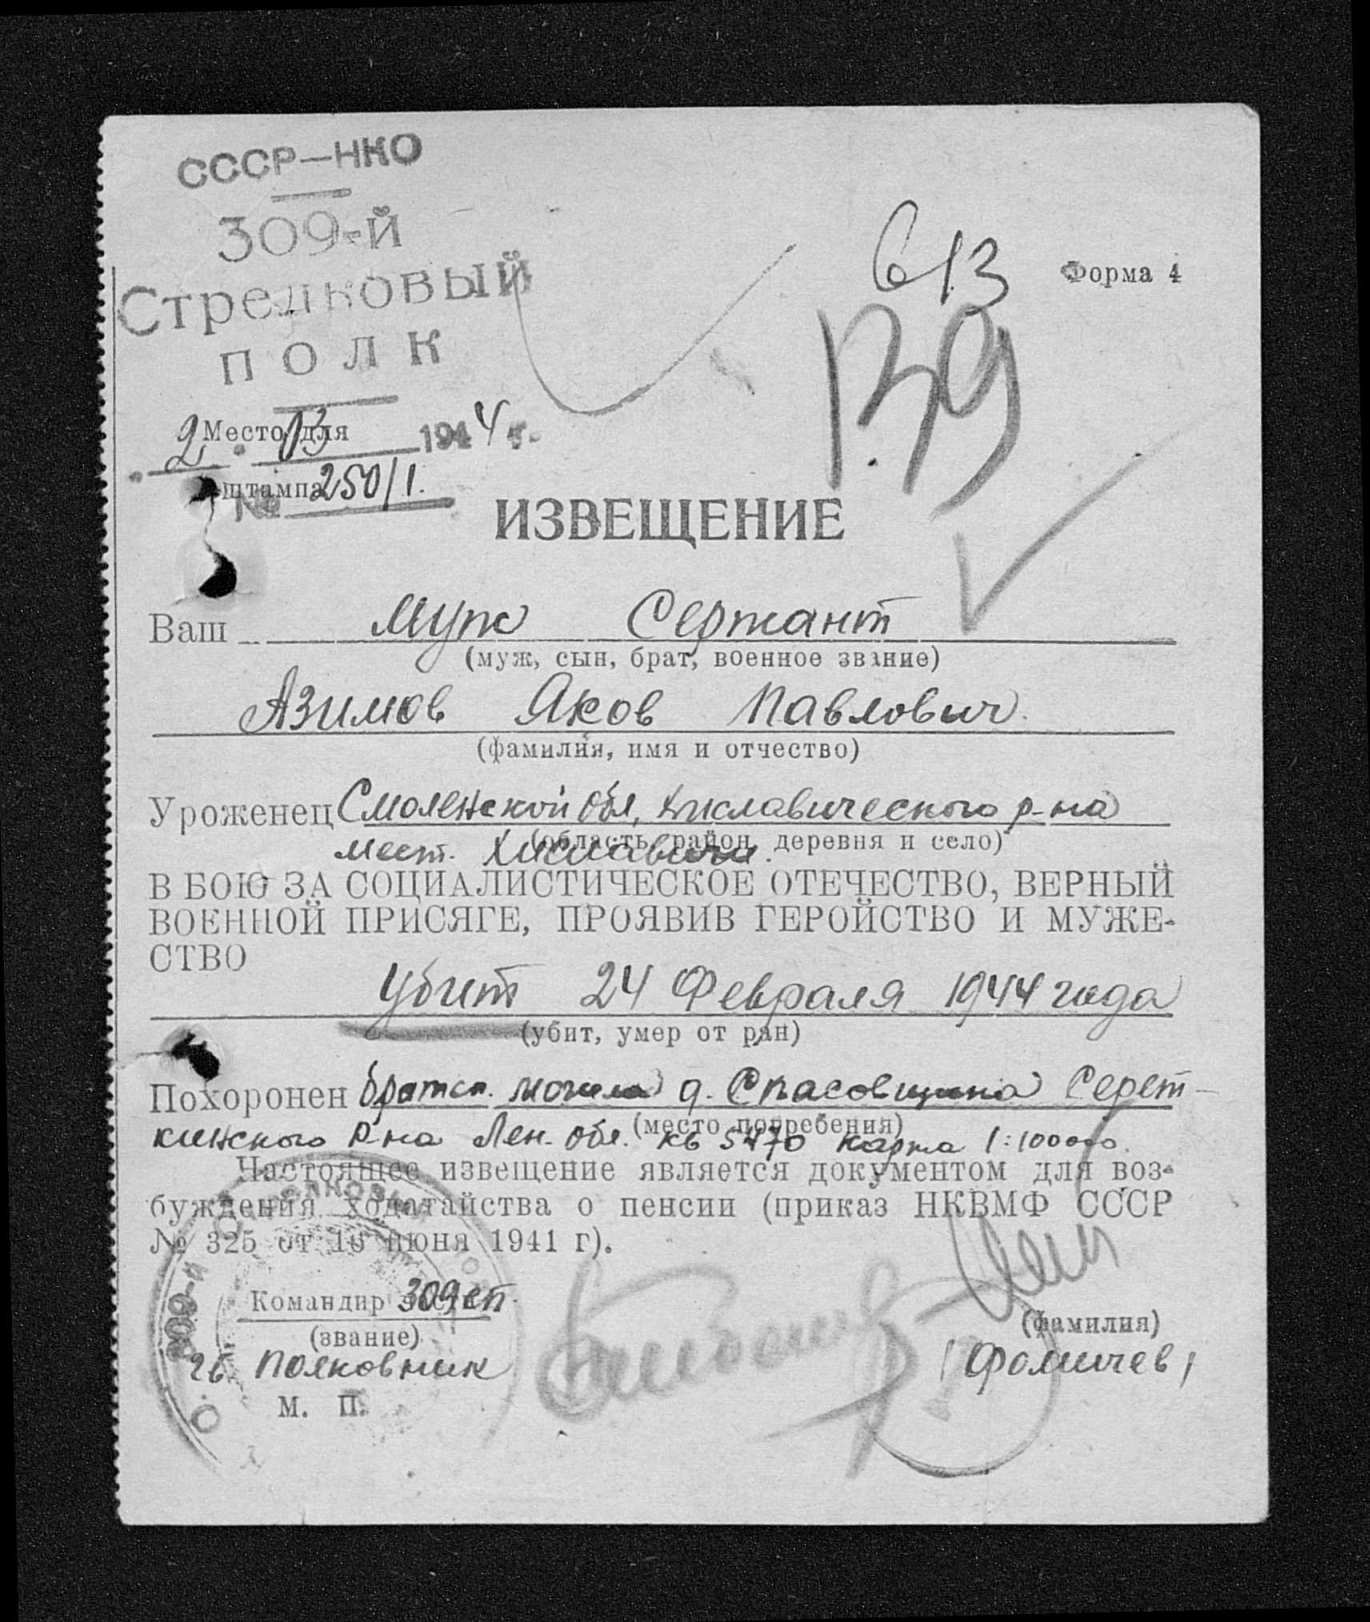 СССР—НКО
309-й
Стрелковый
ПОЛК
613
Форма 4
139
Место для
2 03 1944 г.
штампа
№ 250/1.
ИЗВЕЩЕНИЕ
Ваш муж Сержант
(муж, сын, брат, военное звание)
Азимов Яков Павлович.
(фамилия, имя и отчество)
Уроженец Смоленской обл, Хиславического р-на
(область, район, деревня и село)
мест. Хиславичи.
В БОЮ ЗА СОЦИАЛИСТИЧЕСКОЕ ОТЕЧЕСТВО, ВЕРНЫЙ
ВОЕННОЙ ПРИСЯГЕ, ПРОЯВИВ ГЕРОЙСТВО И МУЖЕ-
СТВО
убит 24 Февраля 1944 года
(убит, умер от ран)
Похоронен братск. могила д. Спасовщина Серет-
(место погребения)
кинского р-на Лен. обл. кв 5470 карта 1:100000.
Настоящее извещение является документом для воз-
буждения ходатайства о пенсии (приказ НКВМФ СССР
№ 325 от 16 июня 1941 г).
309-й Стрелковый
Командир 309 сп.
(звание)
гв. Полковник
(фамилия)
(Фомичев)
М. П.